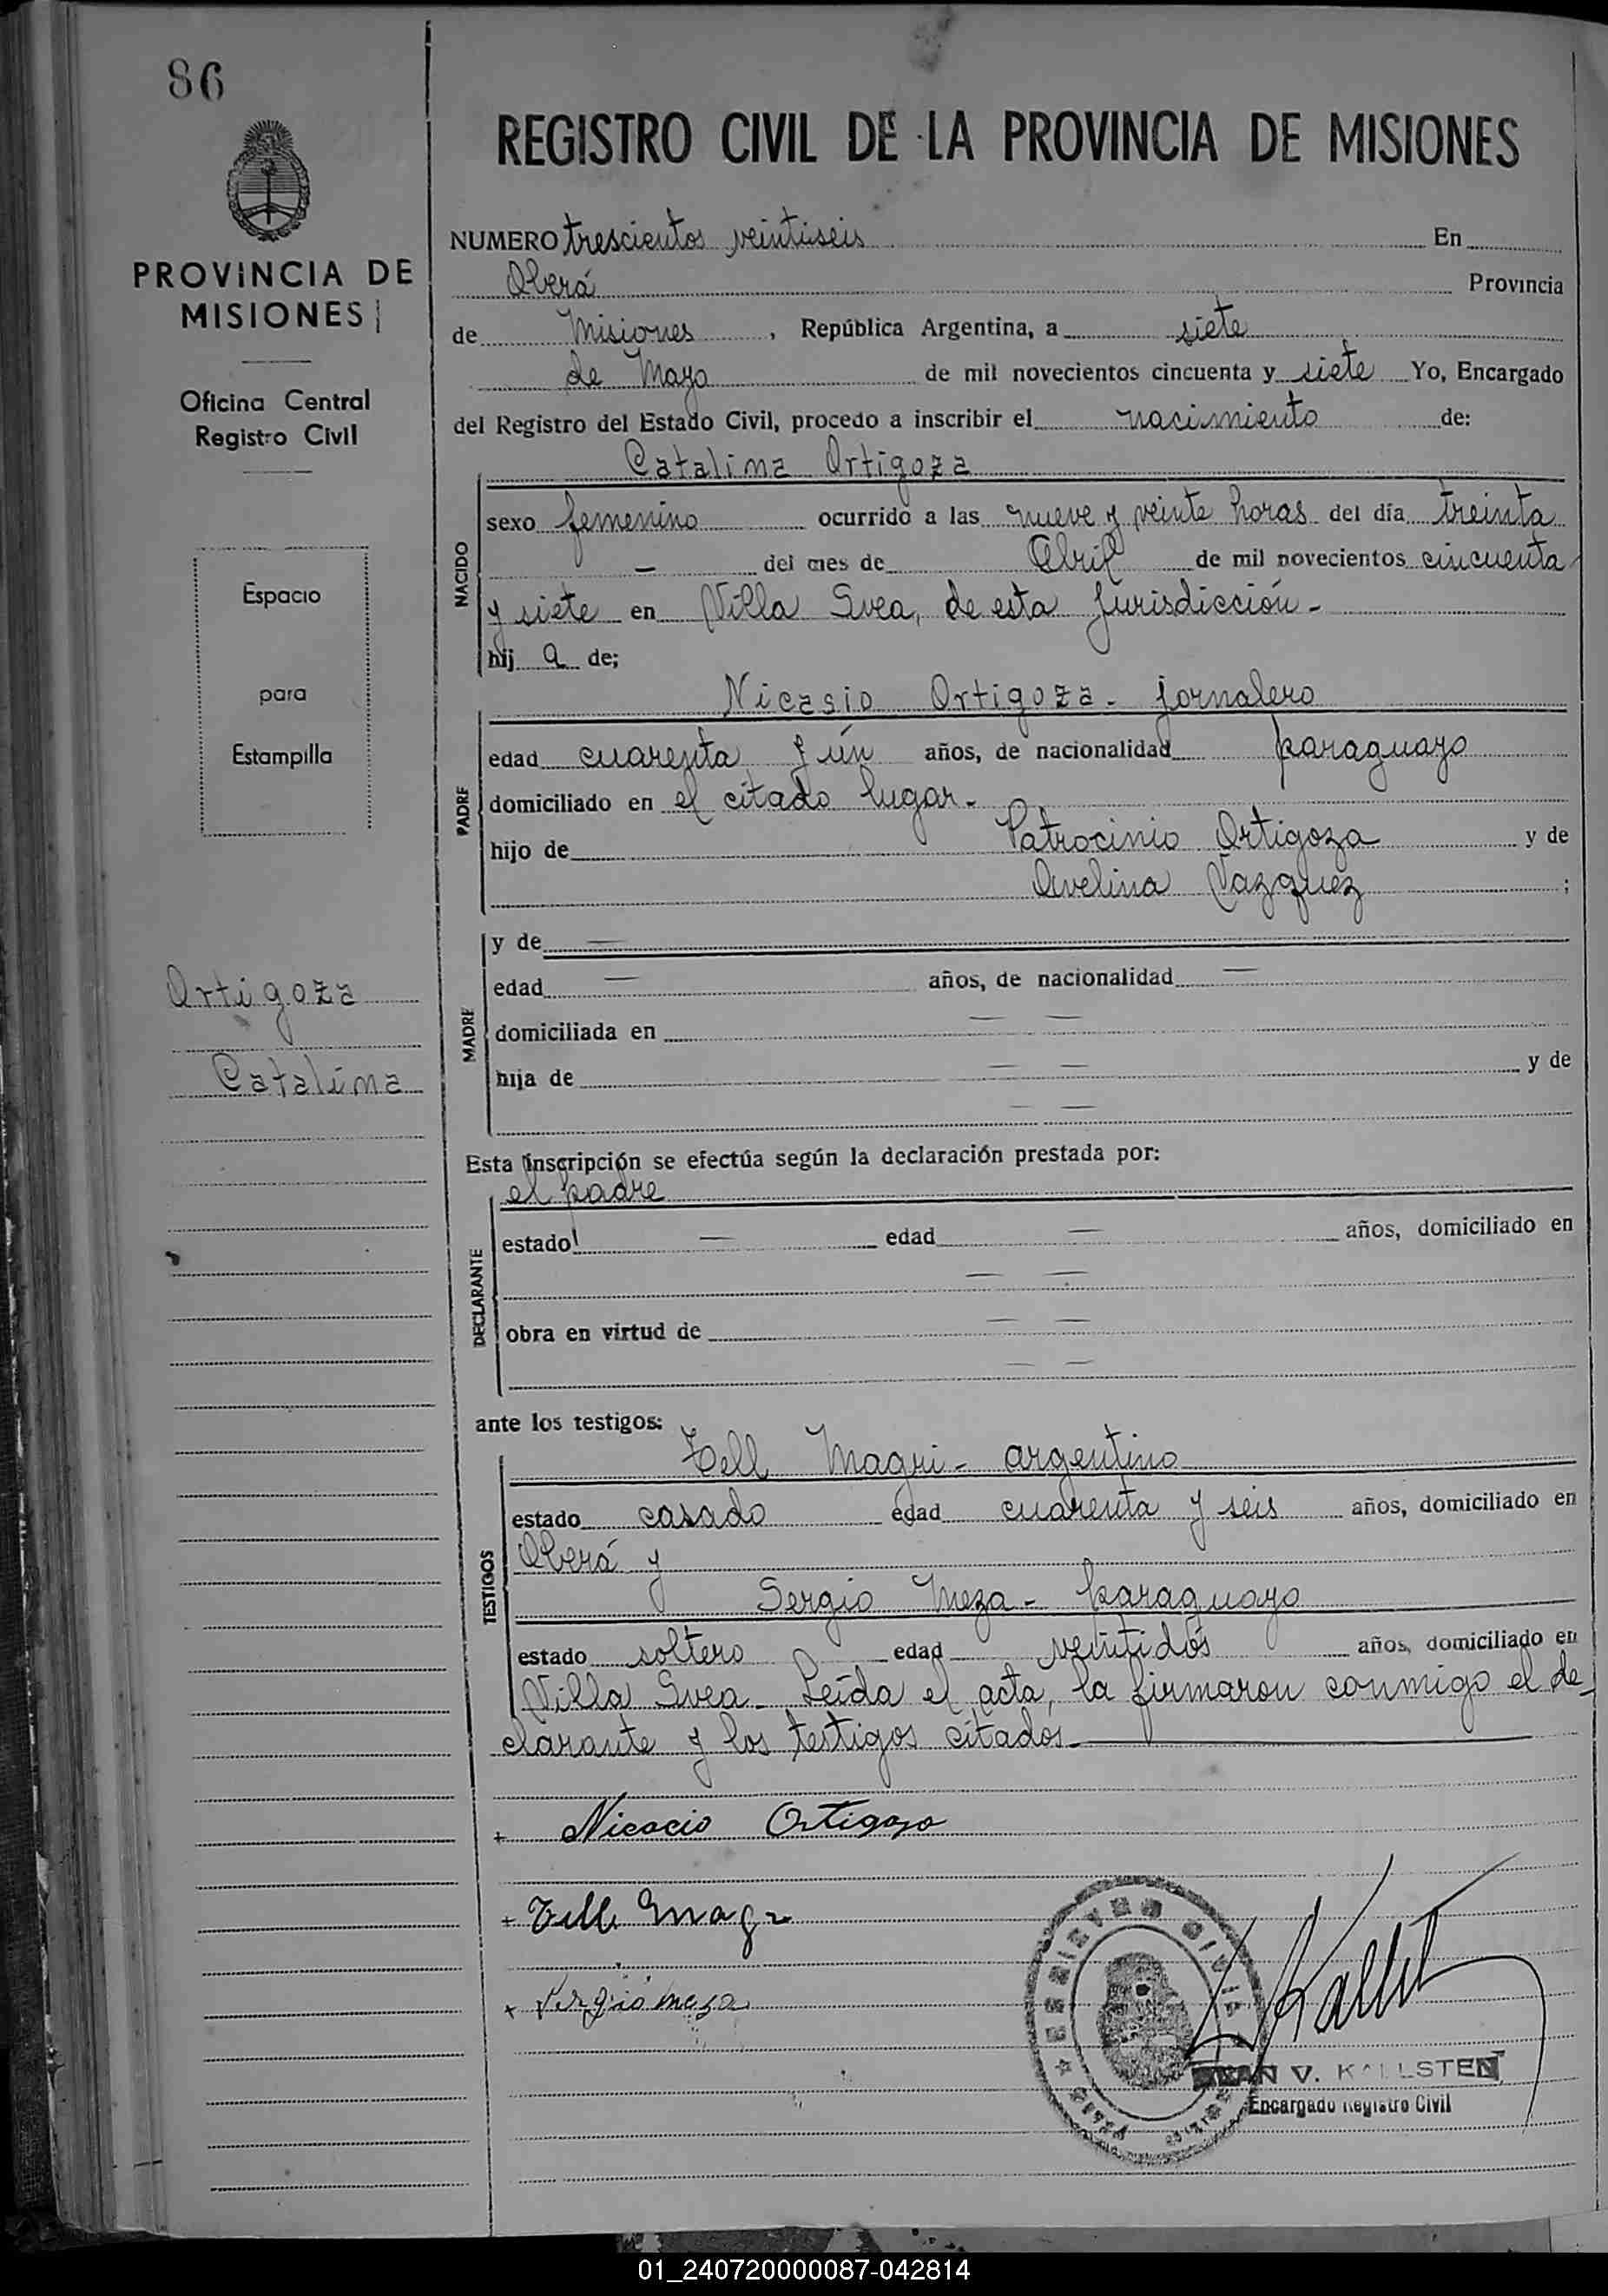 86
REGISTRO CIVIL DE LA PROVINCIA DE MISIONES
PROVINCIA DE
MISIONES
Oficina Central
Registro Civil
Espacio
para
Estampilla
Ortigoza
Catalina
NUMERO trescientos veintiseis En
Oberá Provincia
de Misiones, República Argentina, a siete
de Mayo de mil novecientos cincuenta y siete Yo, Encargado
del Registro del Estado Civil, procedo a inscribir el nacimiento de:
NACIDO
Catalina Ortigoza
sexo femenino ocurrido a las nueve y veinte horas del día treinta
— del mes de Abril de mil novecientos cincuenta
y siete en Villa Svea, de esta Jurisdicción -
hij a de;
PADRE
Nicasio Ortigoza - jornalero
edad cuarenta y ún años, de nacionalidad paraguayo
domiciliado en el citado lugar -
hijo de Patrocinio Ortigoza y de
Avelina Vazquez ;
MADRE
y de —
edad — años, de nacionalidad —
domiciliada en — —
hija de — — y de
— —
Esta inscripción se efectúa según la declaración prestada por:
DECLARANTE
el padre
estado — edad — años, domiciliado en
— —
obra en virtud de — —
— —
ante los testigos:
TESTIGOS
Tell Magri - argentino
estado casado edad cuarenta y seis años, domiciliado en
Oberá y
Sergio Meza - paraguayo
estado soltero edad veintidós años, domiciliado en
Villa Svea - Leída el acta, la firmaron conmigo el de-
clarante y los testigos citados -
+ Nicacio Ortigoza
+ Tell Mag
+ Sergio meza
REGISTRO CIVIL
V. KALLSTEN
Encargado Registro Civil
01_240720000087-042814